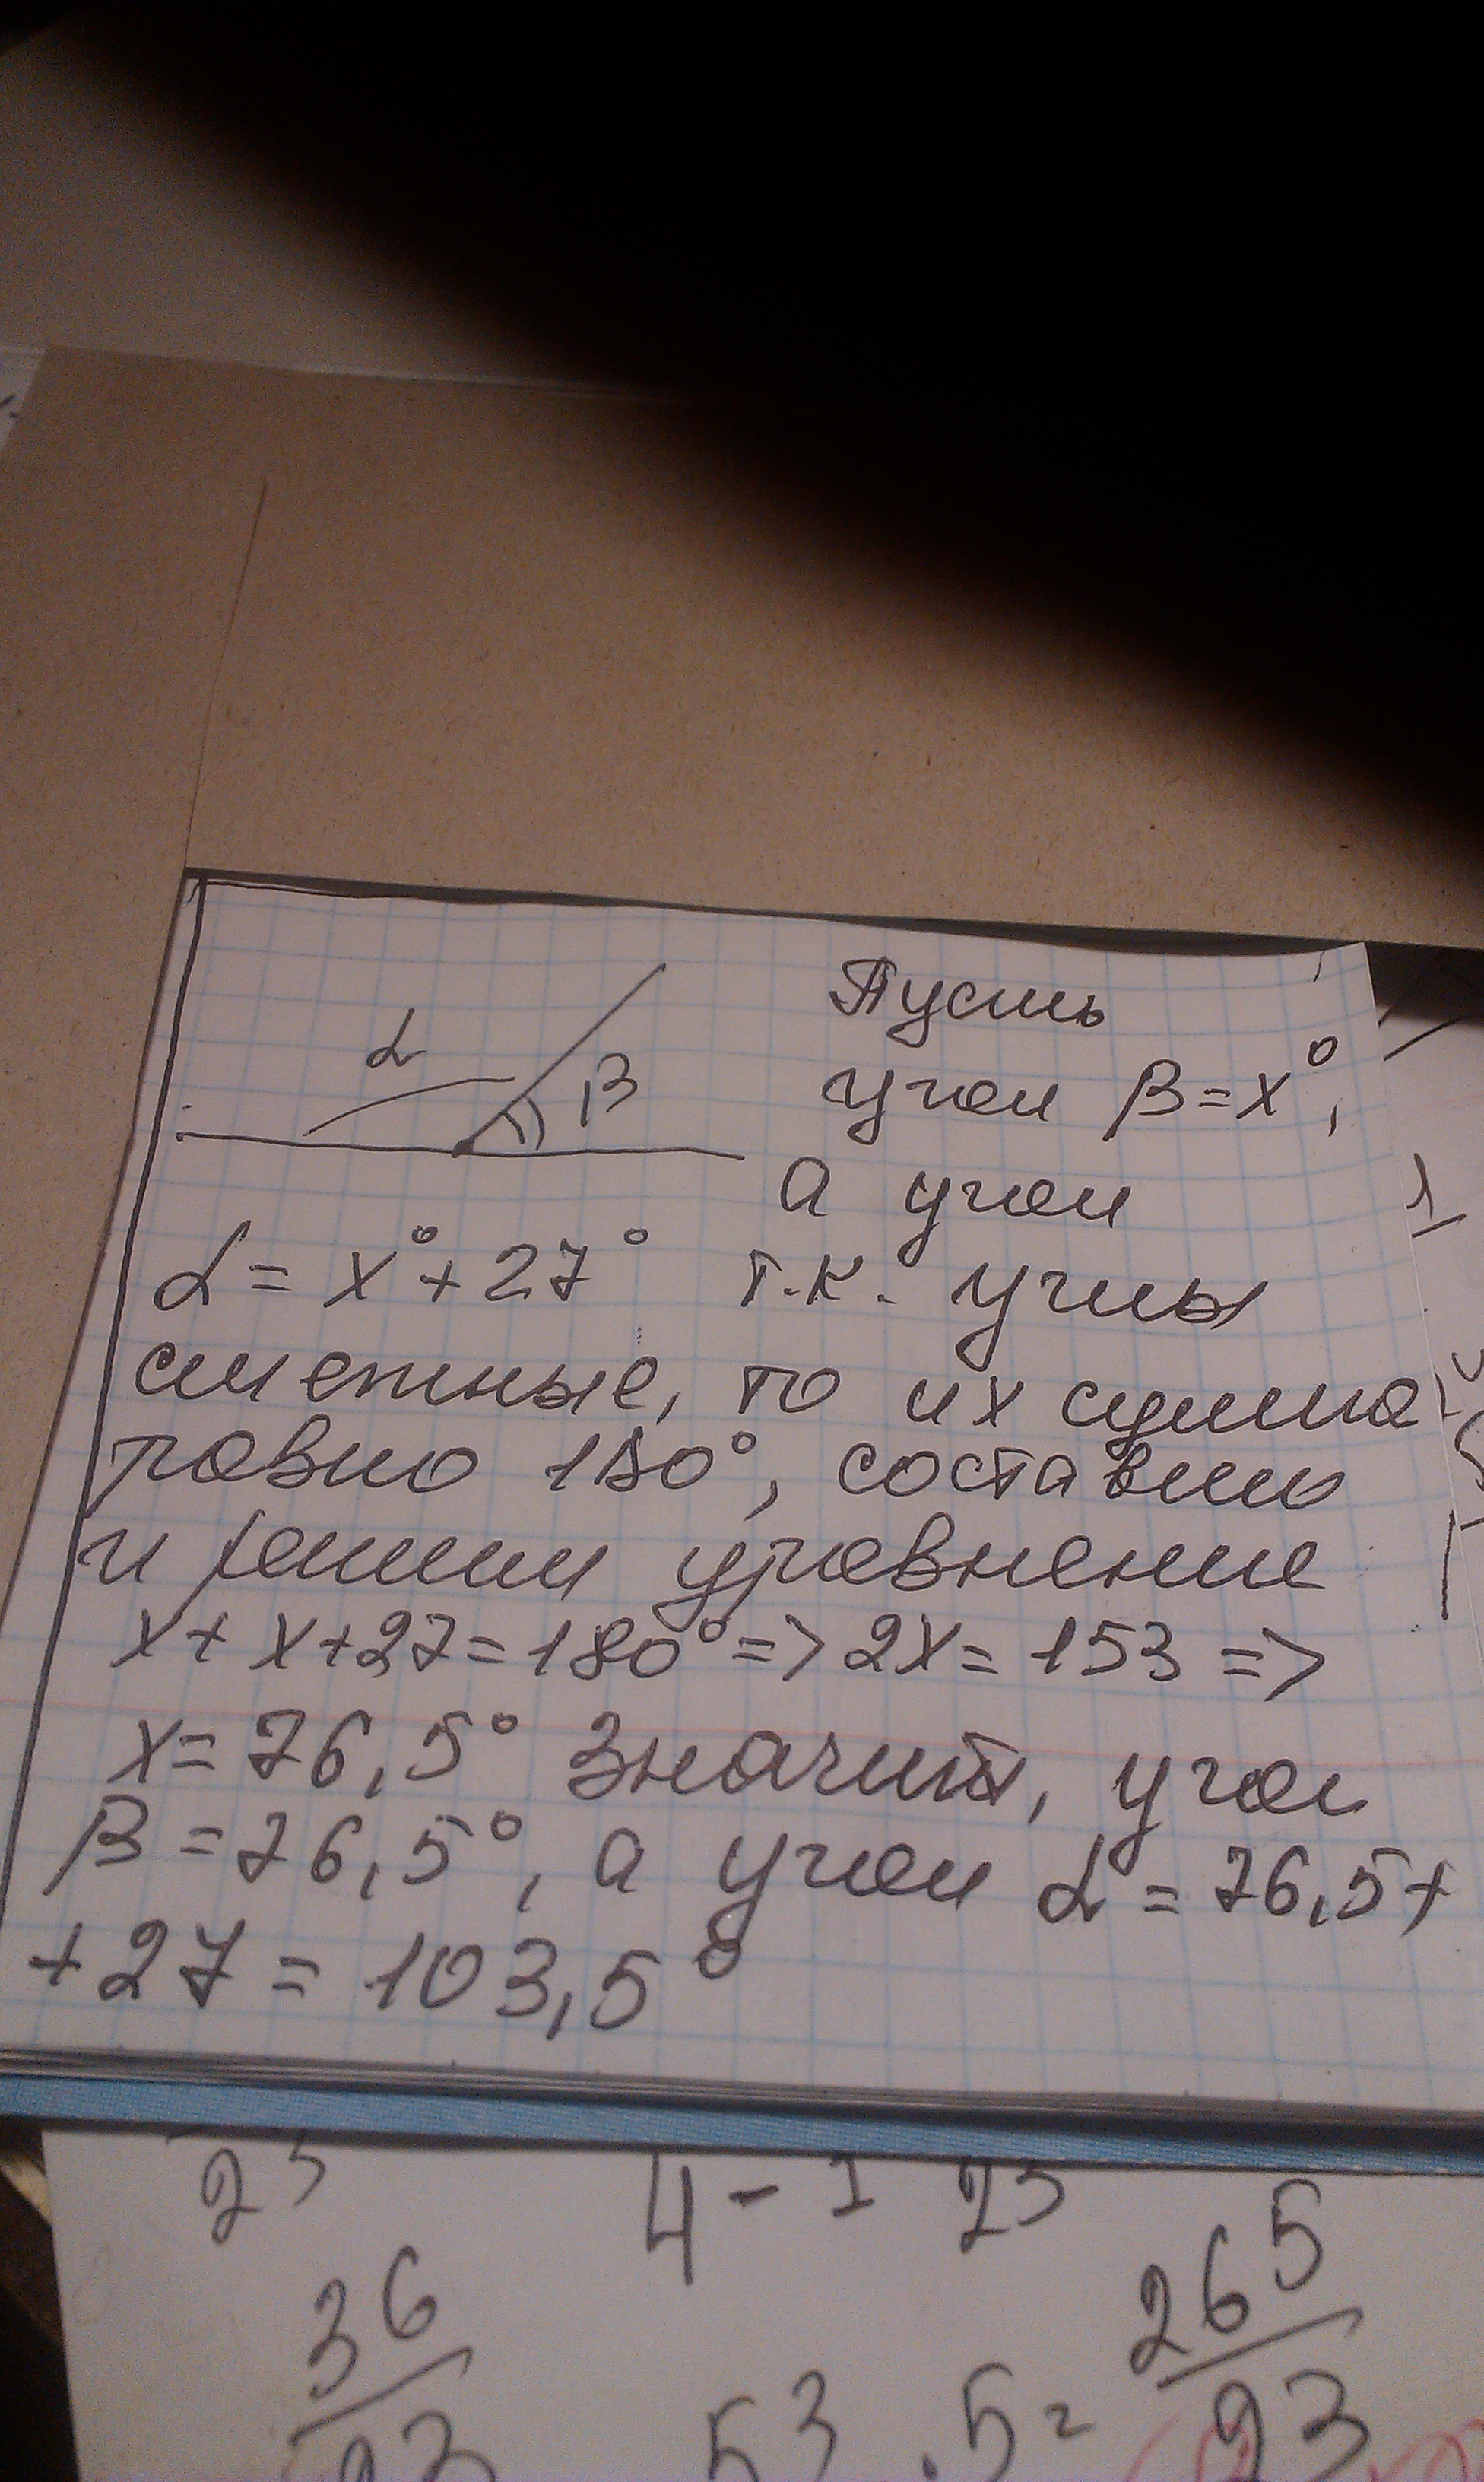 α
β
Пусть
угол β = x°,
а угол
α = x° + 27° т.к. углы
смежные, то их сумма
равно 180°, составим
и решим уравнение
x + x + 27 = 180° => 2x = 153 =>
x = 76,5° Значит, угол
β = 76,5°, а угол α = 76,5 +
+ 27 = 103,5°
23 4 - 1 23
36 265
23 53 . 5 = 23